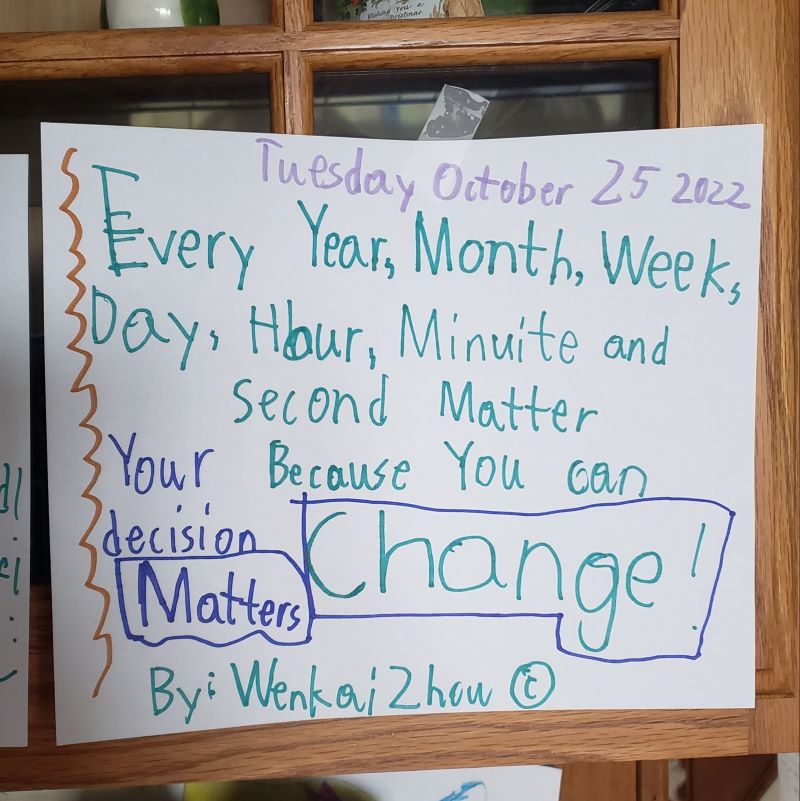 Making you a
Christmas.
Tuesday October 25 2022
Every Year, Month, Week,
Day, Hour, Minuite and
second Matter
Your Because You can
decision Change!
Matters
By: Wenkai Zhou ©